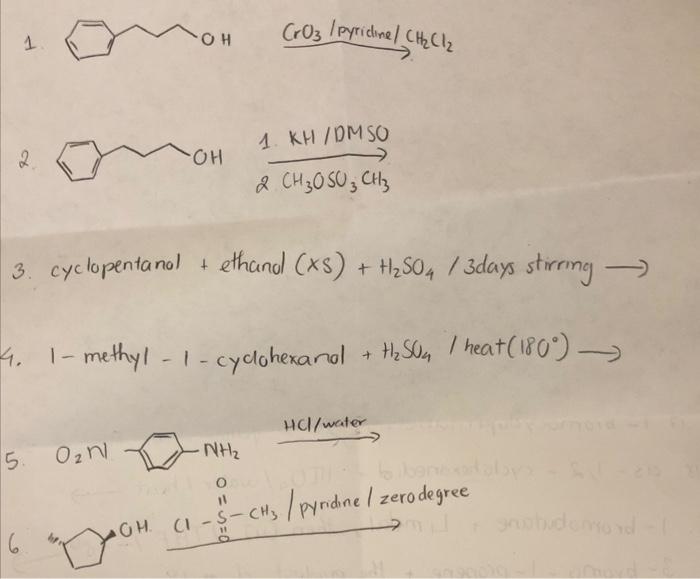 1. OH CrO3 /pyridine/ CH2Cl2
2. OH 1. KH /DMSO
2. CH3OSO3CH3
3. cyclopentanol + ethanol (XS) + H2SO4 / 3days stirring →
4. 1-methyl-1-cyclohexanol + H2SO4 / heat(180°) →
5. O2N NH2 HCl/water
6. OH. Cl-S-CH3 / pyridine / zerodegree
O
O